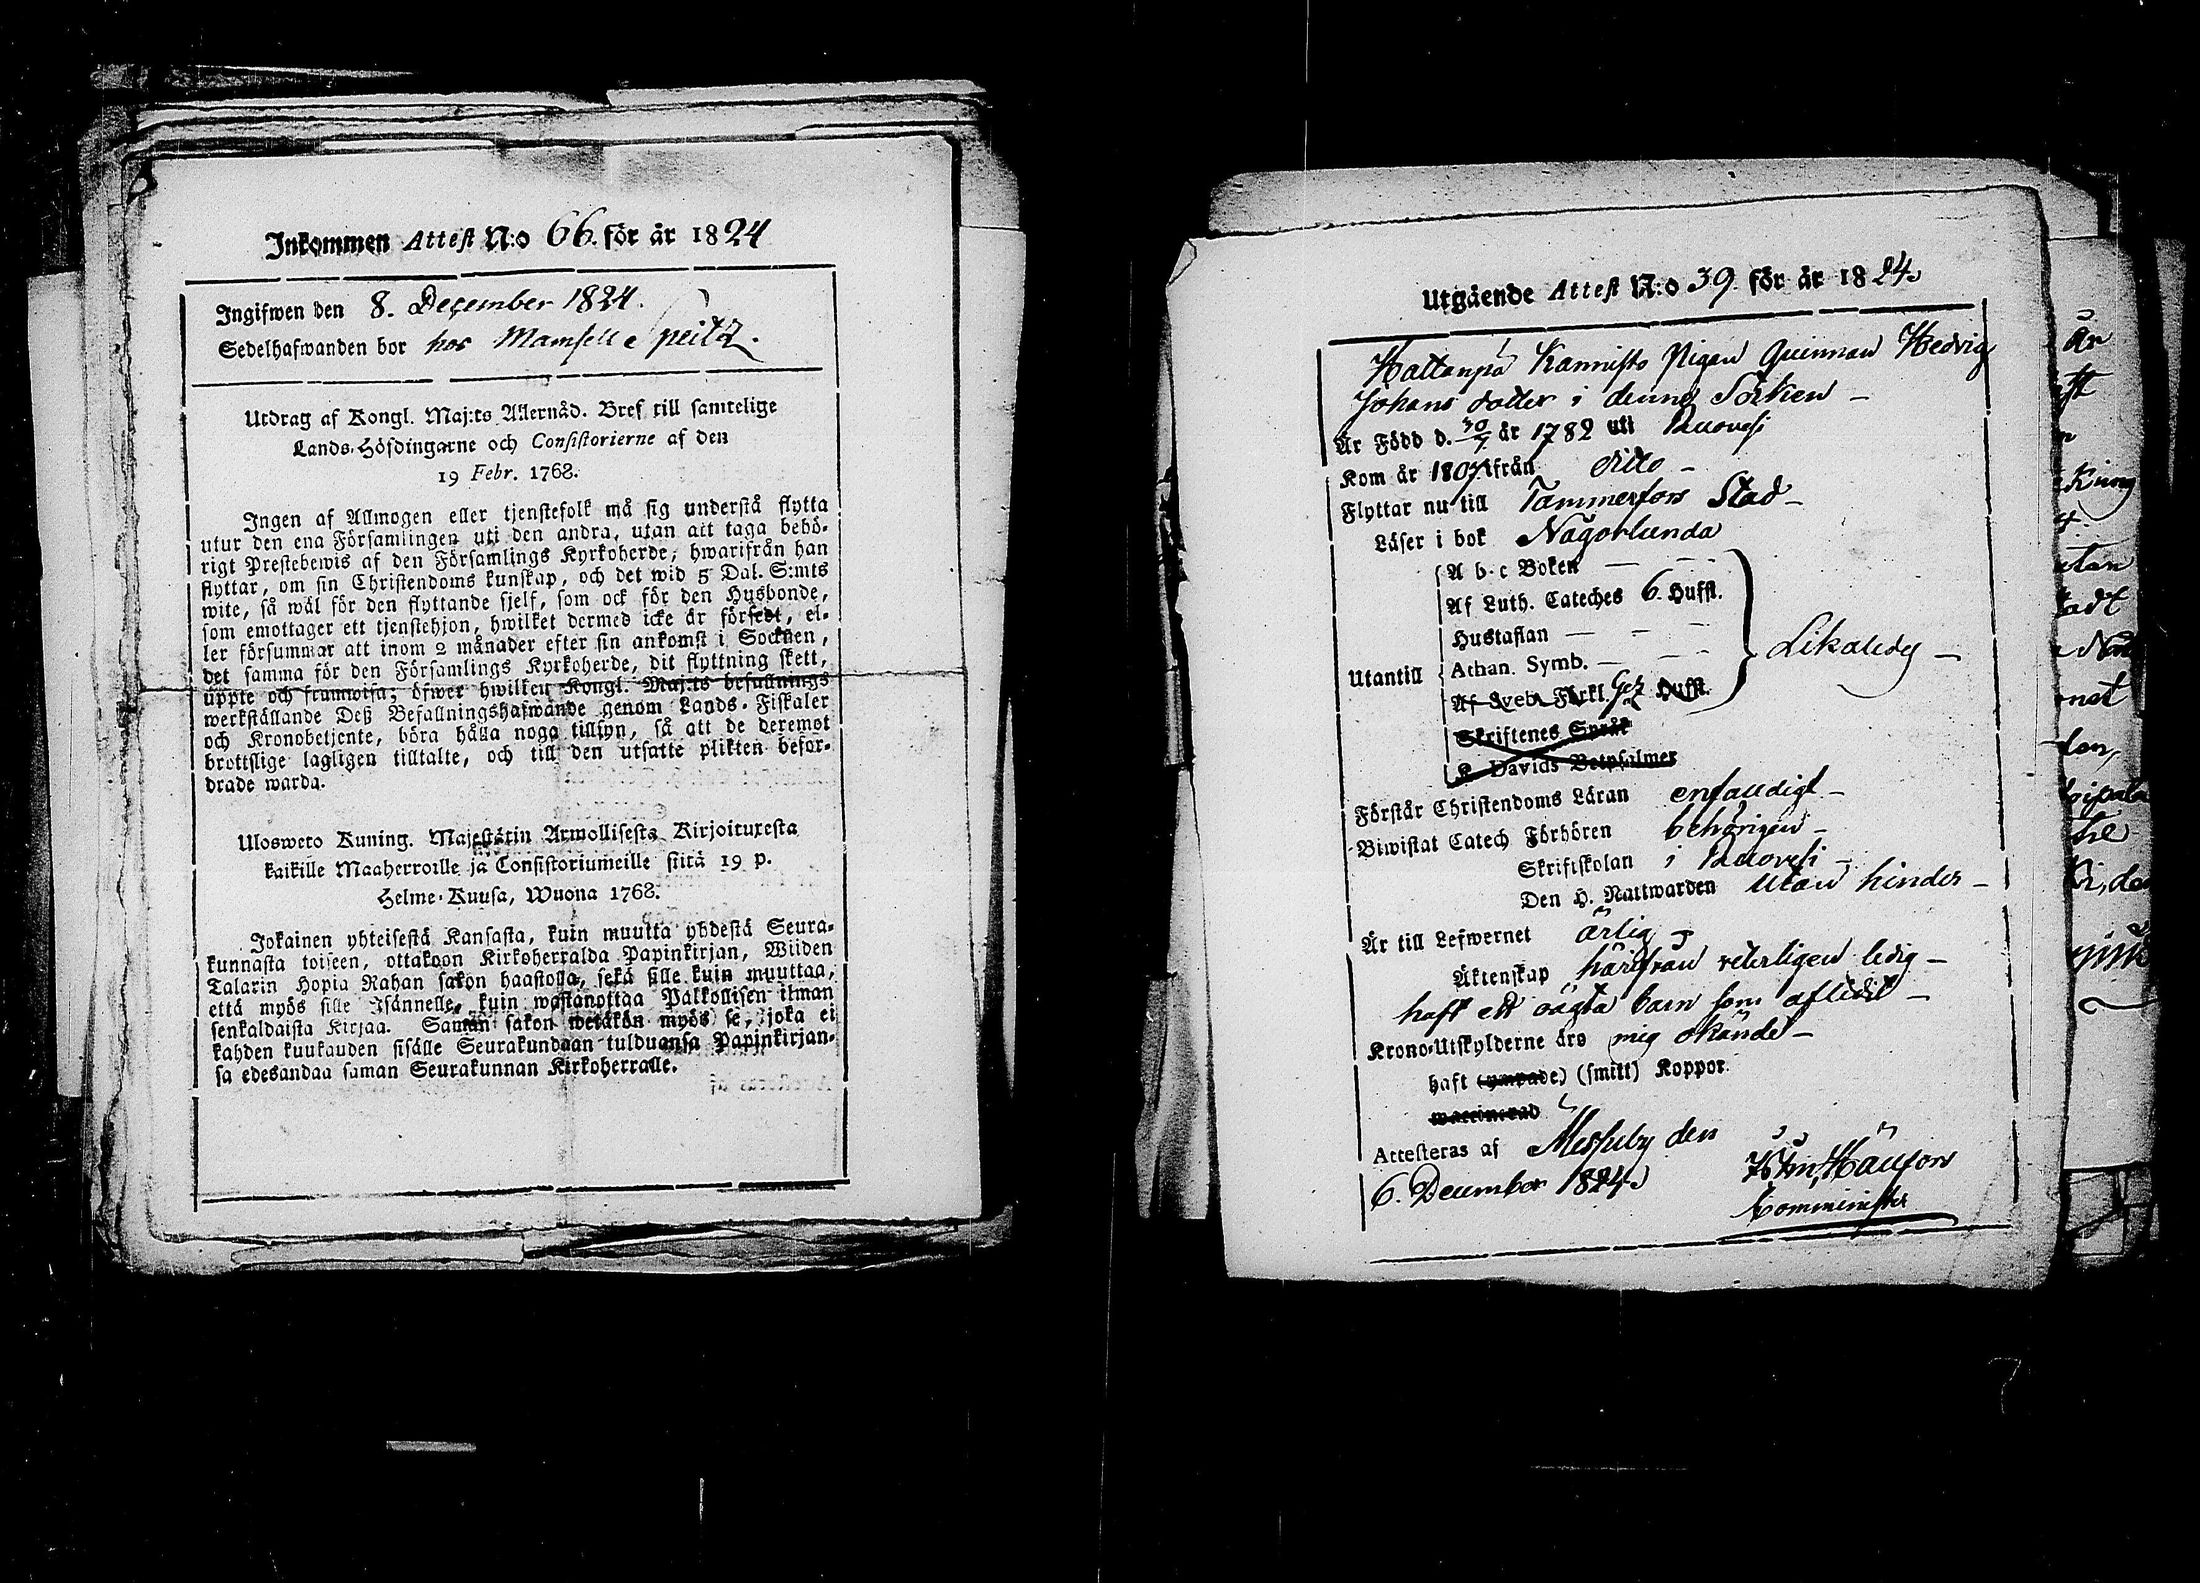 Inkommen Attest N:o 66. för år 1824
Ingifwen den 8. December 1824.
Sedelhafwanden bor hos Mamsell Speitz.
Utdrag af Kongl. Maj:ts Allernåd. Bref till samtelige
Lands-Höfdingarne och Consistorierne af den
19 Febr. 1768.
Ingen af Allmogen eller tjenstefolk må sig understå flytta
utur den ena Församlingen uti den andra, utan att taga behö-
rigt Prestebewis af den Församlings Kyrkoherde, hwarifrån han
flyttar, om sin Christendoms kunskap, och det wid 5 Dal. S:mts
wite, så wäl för den flyttande sjelf, som ock för den Husbonde,
som emottager ett tjenstehjon, hwilket dermed icke är försedt, el-
ler försummar att inom 2 månader efter sin ankomst i Socknen,
det samma för den Församlings Kyrkoherde, dit flyttning skett,
uppte och framwisa; öfwer hwilken Kongl. Maj:ts befallnings
werkställande Deß Befallningshafwande genom Lands-Fiskaler
och Kronobetjente, böra hålla noga tillsyn, så att de deremot
brottslige lagligen tilltalte, och till den utsatte plikten befor-
drade warda.
Ulosweto Kuning. Majestätin Armollisesta Kirjoituxesta
kaikille Maaherroille ja Consistoriumeille siitä 19 p.
Helme-Kuusa, Wuona 1768.
Jokainen yhteisestä Kansasta, kuin muutta yhdestä Seura-
kunnasta toiseen, ottakoon Kirkoherralda Papinkirjan, Wiiden
Talarin Hopia Rahan sakon haastolla, sekä sille kuin muuttaa,
että myös sille Isännelle, kuin wastanottaa Palkollisen ilman
senkaldaista Kirjaa. Samän sakon wetäkön myös se, joka ei
kahden kuukauden sisälle Seurakundaan tulduansa Papinkirjan-
sa edesandaa saman Seurakunnan Kirkoherralle.
Utgående Attest N:o 39. för år 1824.
Hattanpä Kannisto Pigan Quinnan Hedvig
Johans dotter i denne Sócken —
Är Född d. 30/7 år 1782 uti Ruovesi
Kom år 1807 ifrån dito —
Flyttar nu till Tammerfors Stad —
Läser i bok Någorlunda
A b c Boken — —
Af Luth. Cateches 6. Hufst.
Hustaflan — — —
Utantill Athan. Symb. — — — Likaledes —
Af Sveb. Förkl. Hufst.
Skriftenes Språk
K. Davids Botpsalmer
Förstår Christendoms Läran enfaldigt —
Biwistat Catech Förhören behörigen —
Skriftskolan i Ruovesi —
Den H. Nattwarden utan hinder —
Är till Lefwernet ärlig —
Äktenskap härifrån veterligen ledig —
haft ett oägta barn som aflidit —
Krono-Utskylderne äro mig okände —
haft (ympade) (smitt) Koppor.
waccinerad
Attesteras af Messuby den
6. December 1824.
Komminister
år